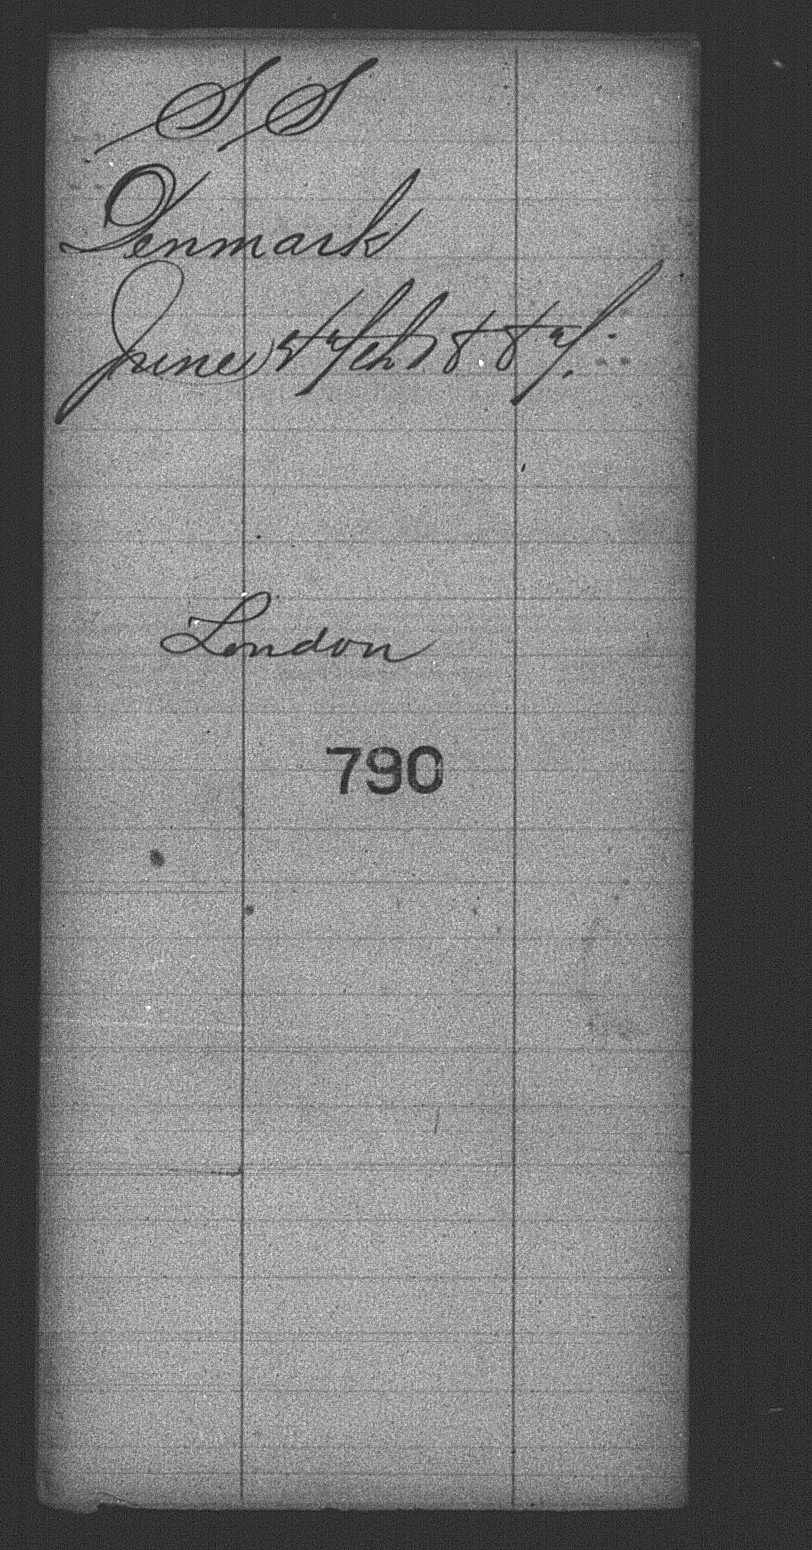 SS
Denmark
June 27th 1887.
London
790